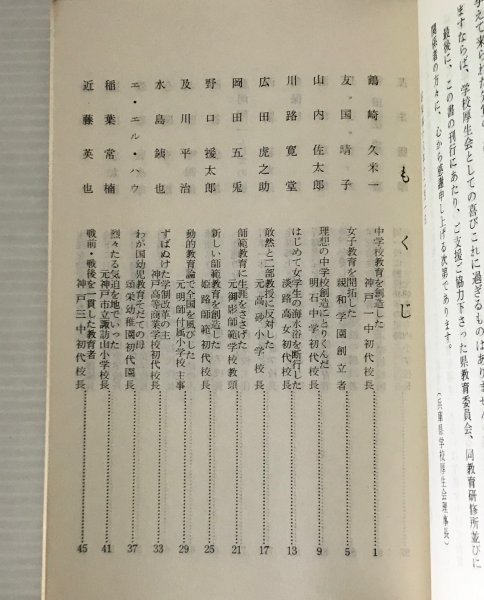 与えて来られた
ますならば、学校厚生会としての喜びこれに過ぎるものはありません。
最後に、この書の刊行にあたり、ご支援ご協力下さった県教育委員会、同教育研修所並びに
関係者の方々に、心から感謝申し上げる次第であります。
（兵庫県学校厚生会理事長）
もくじ
鶴崎久米一 中学校教育を創造した 神戸一中初代校長……1
友国晴子 女子教育を開拓した 親和学園創立者……5
山内佐太郎 理想の中学校創造にとりくんだ 明石中学初代校長……9
川路寛堂 はじめて女学生の海水浴を断行した 淡路高女初代校長……13
広田虎之助 敢然と二部教授に反対した 元高砂小学校長……17
岡田五兎 師範教育に生涯をささげた 元御影師範学校教頭……21
野口援太郎 新しい師範教育を創造した 姫路師範初代校長……25
及川平治 動的教育論で全国を風びした 元明師付属小学校主事……29
水島銕也 ずばぬけた学制改革の主 神戸高等商業学校初代校長……33
エ・エル・ハウ わが国幼児教育そだての母 頌栄幼稚園初代園長……37
稲葉常楠 烈々たる気迫を地でいった 元神戸市立諏訪山小学校長……41
近藤英也 戦前・戦後を一貫した教育者 神戸三中初代校長……45